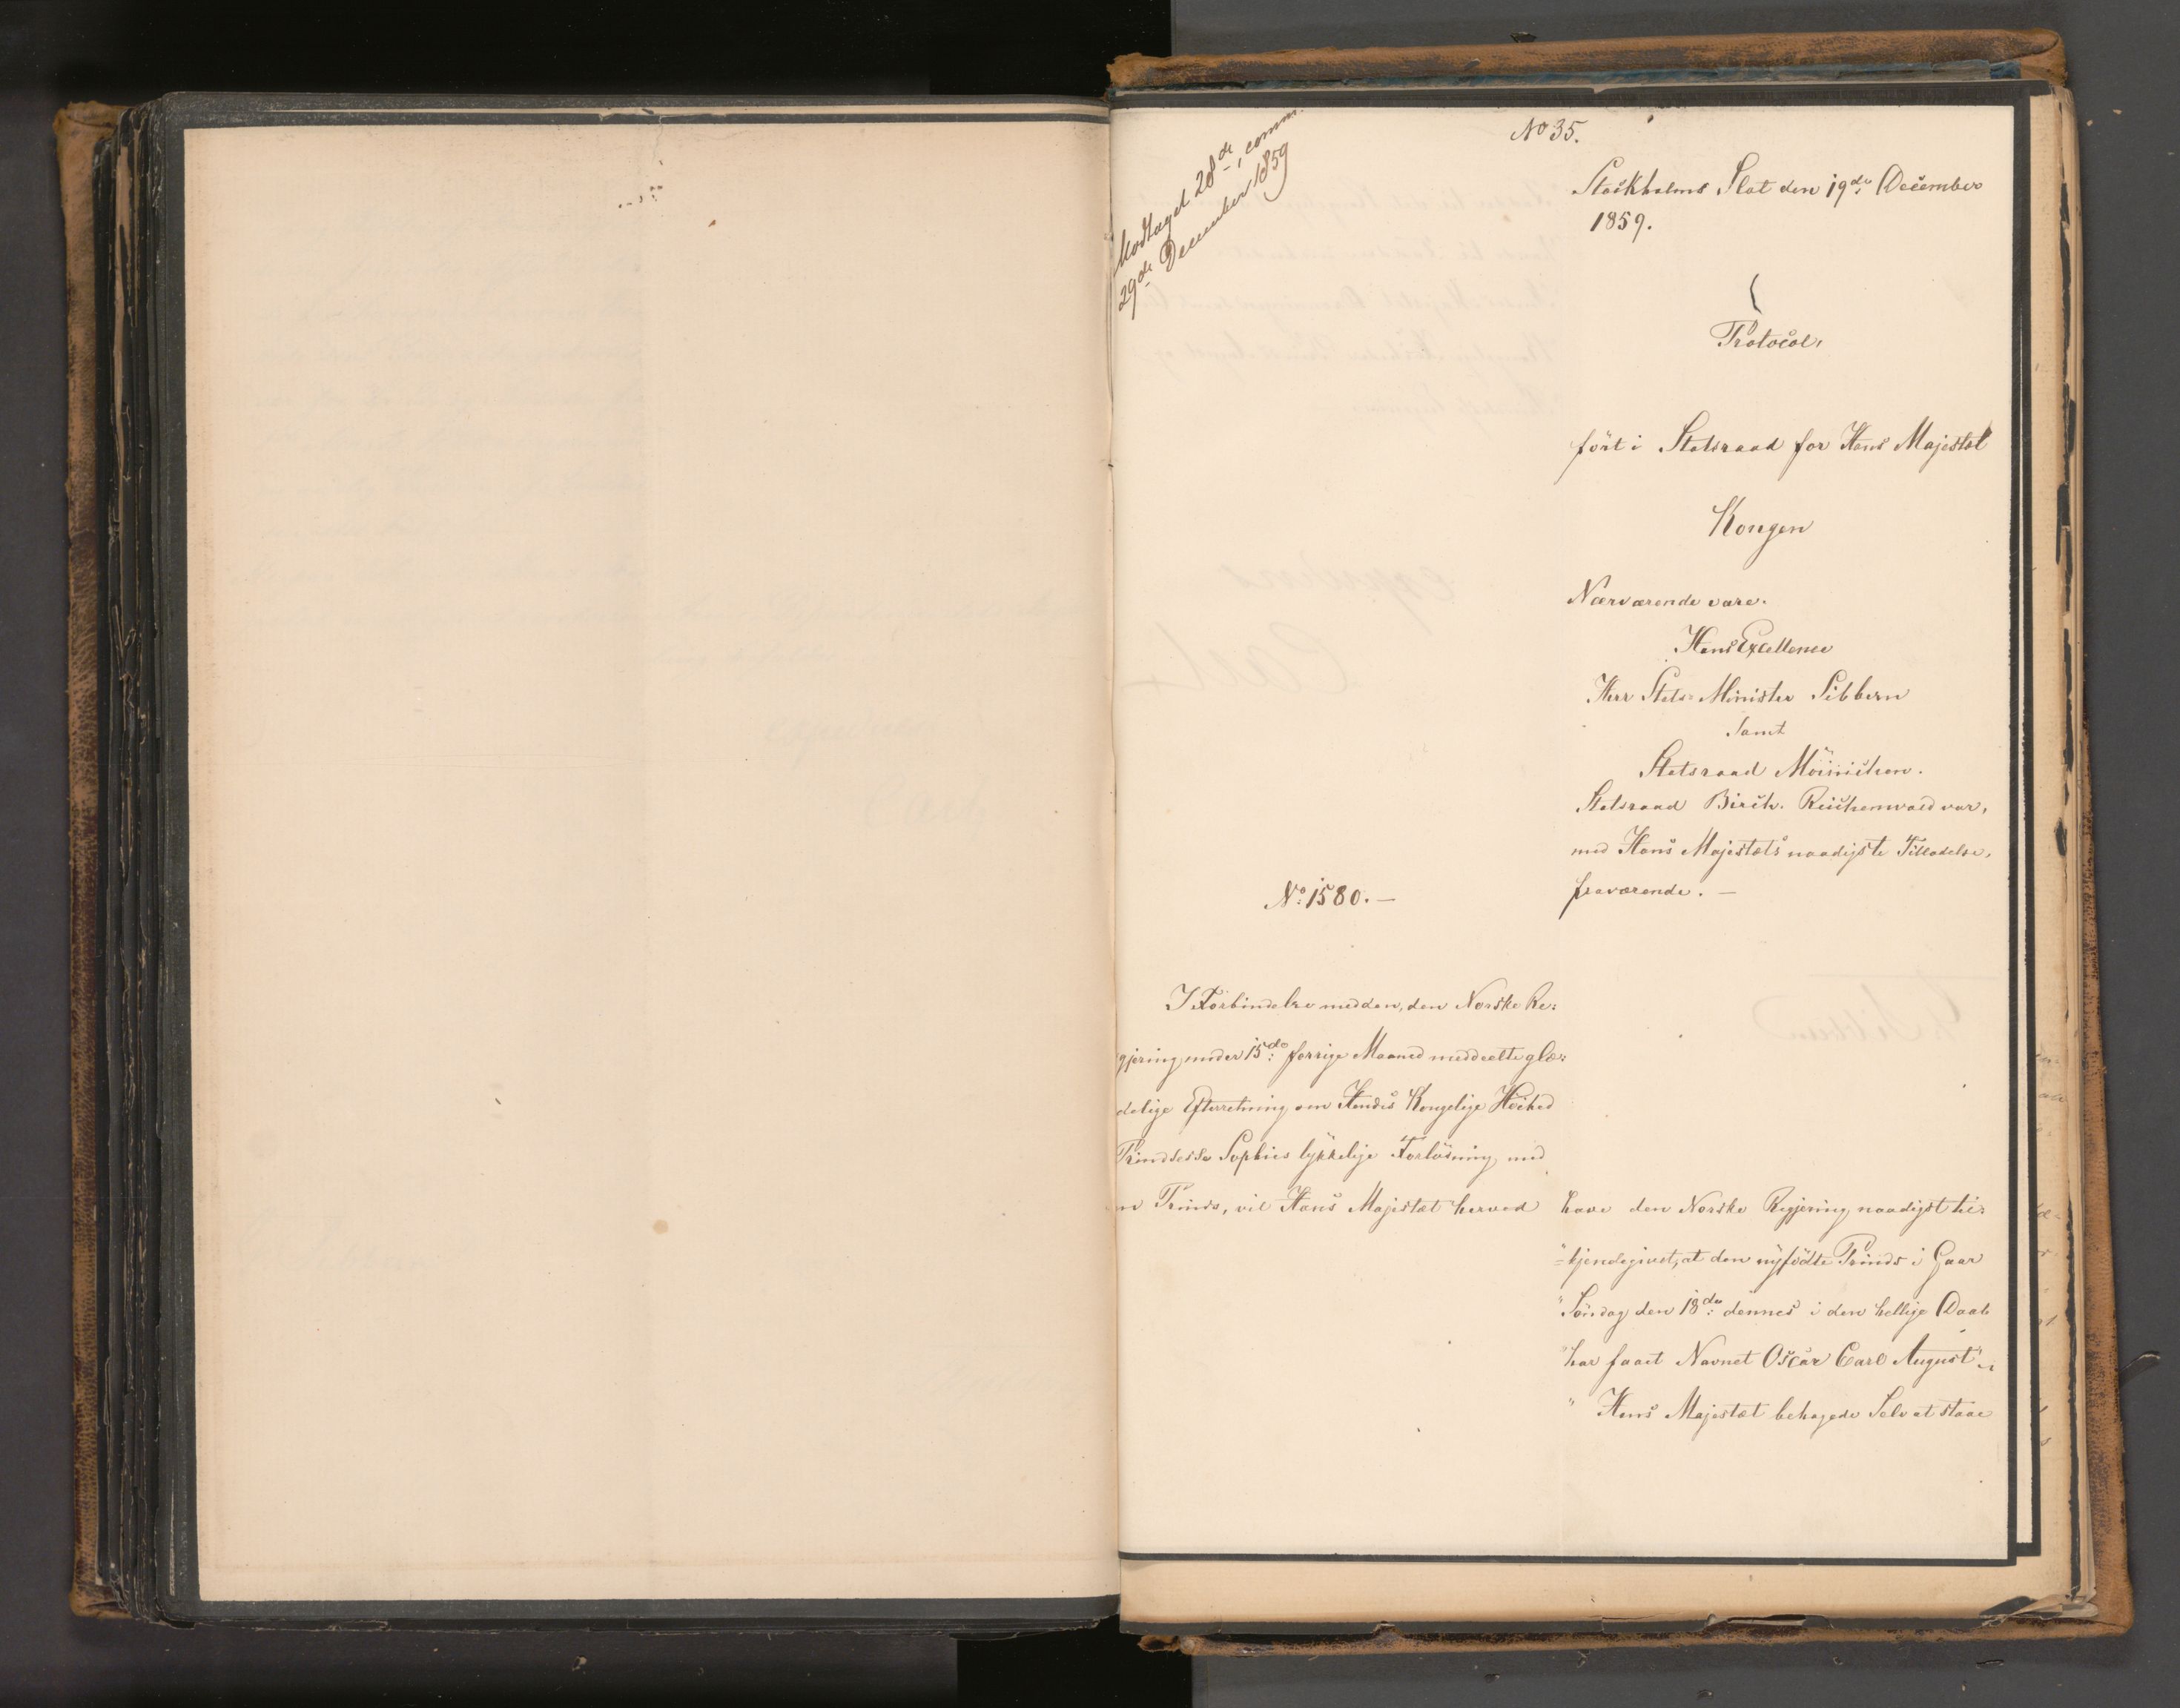 Modtaget 28de, comm.
29de December 1859
No 35.
Stockholms Slot den 19de December
1859.
Protocol,
ført i Statsraad for Hans Majestæt
Kongen
Nærværende vare.
Hans Excellence
Herr Stats-Minister Sibbern
samt
Statsraad Möinichen.
Statsraad Birch-Reichenwald var,
med Hans Majestæts naadigste Tilladelse,
fraværende. —
No: 1580. —
I Forbindelse med den, den Norske Re:
gjering under 15de: forrige Maaned meddeelte glæ:
delige Efterretning om Hendes Kongelige Höihed
Prindsesse Sophies lykkelige Forlösning med
en Prinds, vil Hans Majestæt herved
have den Norske Regjering naadigst til:
"kjendegivet, at den nyfödte Prinds i Gaar
"Söndag den 18de: dennes i den hellige Daab
"har faaet Navnet Oscar Carl August".
" Hans Majestæt behagede Selv at staae